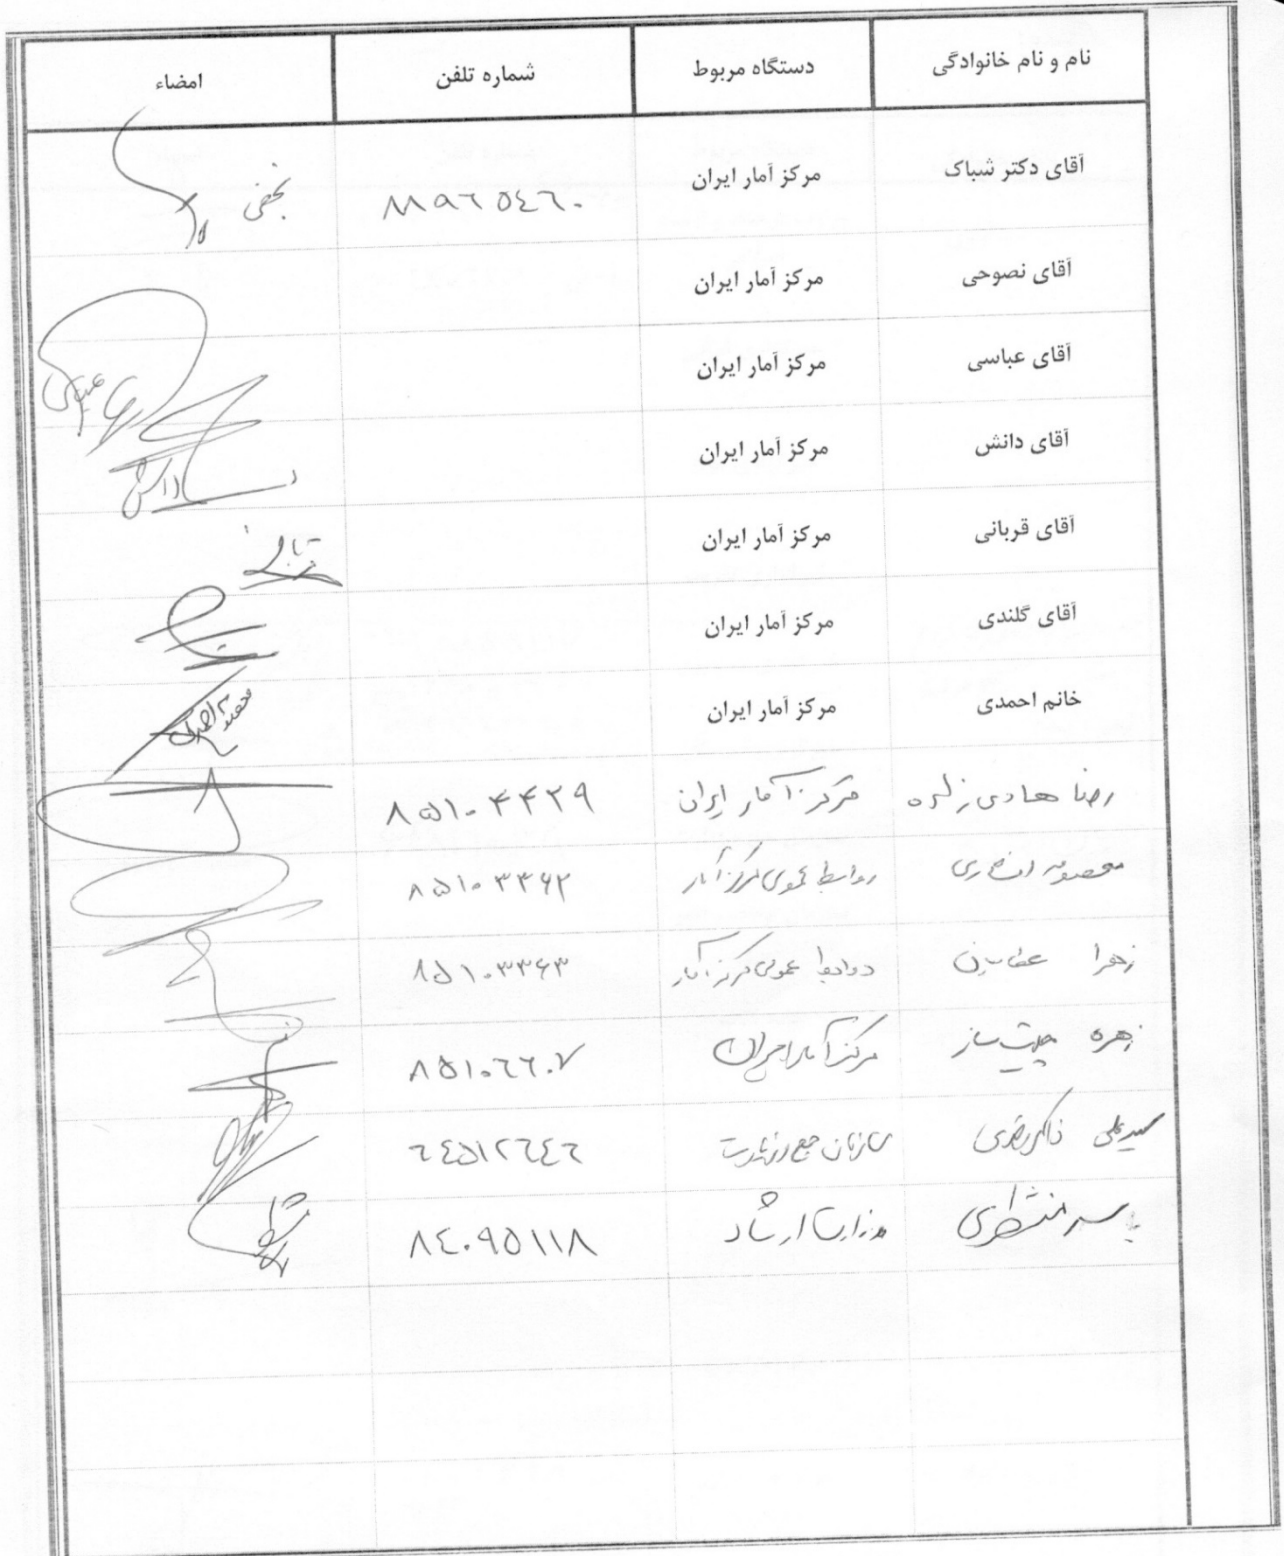 نام و نام خانوادگی دستگاه مربوط شماره تلفن امضاء
آقای دکتر شباک مرکز آمار ایران ٨٨٩٦٥٤٦٠
آقای نصوحی مرکز آمار ایران
آقای عباسی مرکز آمار ایران
آقای دانش مرکز آمار ایران
آقای قربانی مرکز آمار ایران
آقای گلندی مرکز آمار ایران
خانم احمدی مرکز آمار ایران
رضا هادی زاده مرکز آمار ایران ۸۵۱۰۴۴۲۹
معصومه انصاری روابط عمومی مرکز آمار ۸۵۱۰۳۳۶۲
زهرا روابط عمومی مرکز آمار ۸۵۱۰۳۳۶۳
زهره چیت ساز مرکز آمار ایران ٨٥١٠٦٦٠٧
سید علی سازمان ٦٤٥١٢٦٤٦
منتظری وزارت ارشاد ٨٤٠٩٥١١٨